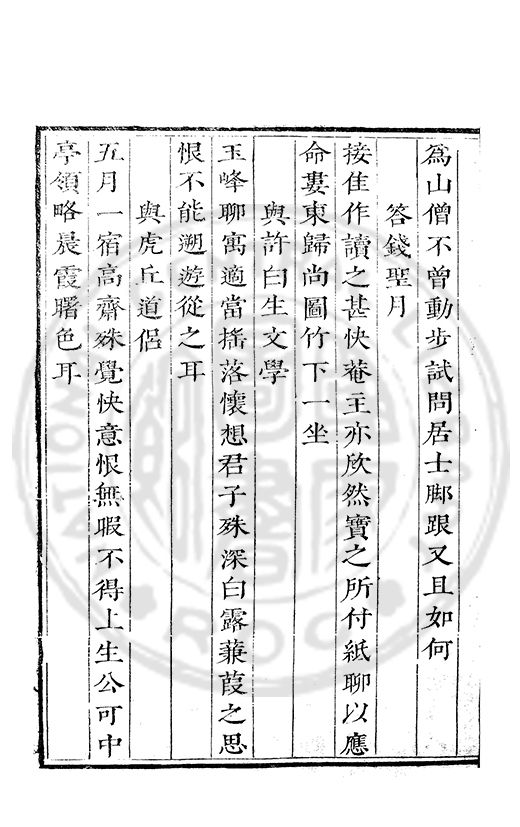 爲山僧不曾動步試問居士脚跟又且如何
答錢聖月
接佳作讀之甚快菴主亦欣然寶之所付紙聊以應
命婁東歸尚圖竹下一坐
與許白生文學
玉峰聊寓適當揺落懷想君子殊深白露蒹葭之思
恨不能遡遊從之耳
與虎丘道侶
五月一宿高齋殊覺快意恨無暇不得上生公可中
亭領略晨霞曙色耳